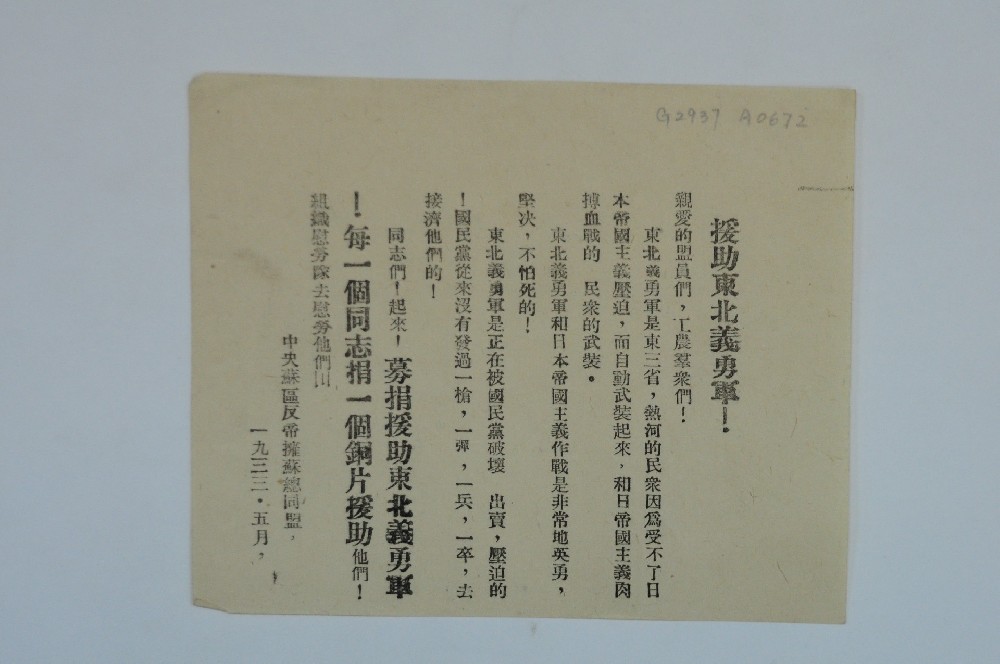 G2937 A0672
援助東北義勇軍！
親愛的盟員們，工農羣衆們！
東北義勇軍是東三省，熱河的民衆因爲受不了日
本帝國主義壓迫，而自動武裝起來，和日帝國主義肉
搏血戰的 民衆的武裝。
東北義勇軍和日本帝國主義作戰是非常地英勇，
堅决，不怕死的！
東北義勇軍是正在被國民黨破壞 出賣，壓迫的
！國民黨從來沒有發過一槍，一彈，一兵，一卒，去
接濟他們的！
同志們！起來！募捐援助東北義勇軍
！每一個同志捐一個銅片援助他們！
組織慰勞隊去慰勞他們！！！
中央蘇區反帝擁蘇總同盟，
一九三三．五月，